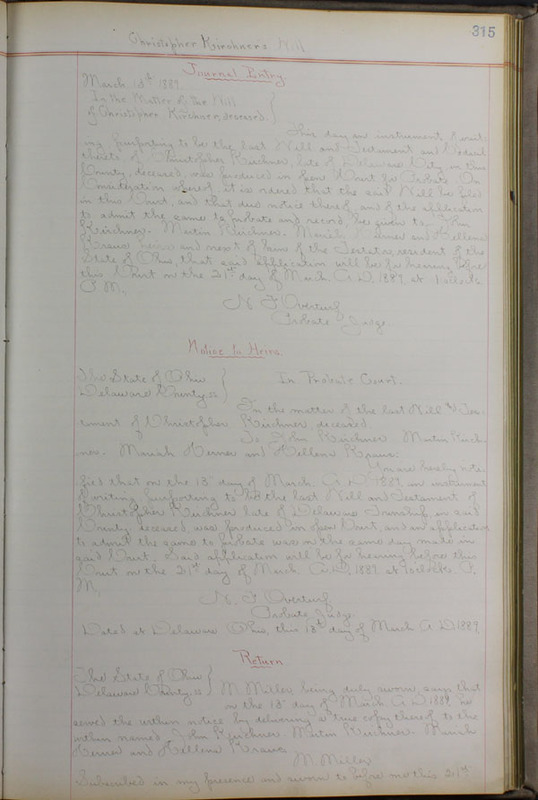 315
Christopher Kirchner's Will
Journal Entry
March 13th 1889.
In the Matter of the Will
of Christopher Kirchner, deceased.
This day an instrument of writ-
ing purporting to be the last Will and Testament and
thereto of Christopher Kirchner, late of Delaware City, in this
County, deceased, was produced in open Court for Probate. On
Consideration thereof, it is ordered that the said Will be filed
in this Court, and that due notice thereof, and of the application
to admit the same to probate and record, be given to John
Kirchner, Martin Kirchner, Mariah and Hellena
heirs and next of kin of the Testator, resident of the
State of Ohio, that said application will be for hearing before
this Court on the 21st day of March A.D. 1889 at 1 oclock
P.M.
N. F. Overturf
Probate Judge.
Notice to Heirs.
The State of Ohio
Delaware County, ss
In Probate Court.
In the matter of the last Will & Tes-
tament of Christopher Kirchner, deceased.
To John Kirchner Martin Kirch-
ner. Mariah and Hellena
You are hereby noti-
fied that on the 13th day of March A.D. 1889, an instrument
of writing purporting to be the last Will and Testament of
Christopher Kirchner late of Delaware Township, in said
County, deceased, was produced in open Court, and an application
to admit the same to probate was on the same day made in
said Court. Said application will be for hearing before this
Court on the 21st day of March A.D. 1889 at 1 oclock P.
M.
N. F. Overturf
Probate Judge
Dated at Delaware Ohio, this 13th day of March A.D. 1889
Return
The State of Ohio
Delaware County, ss
M. Miller being duly sworn, says that
on the 13th day of March A.D. 1889 he
served the within notice by delivering a true copy thereof to the
within named John Kirchner. Martin Kirchner. Mariah
and Hellena
M. Miller
Subscribed in my presence and sworn to before me this 21st